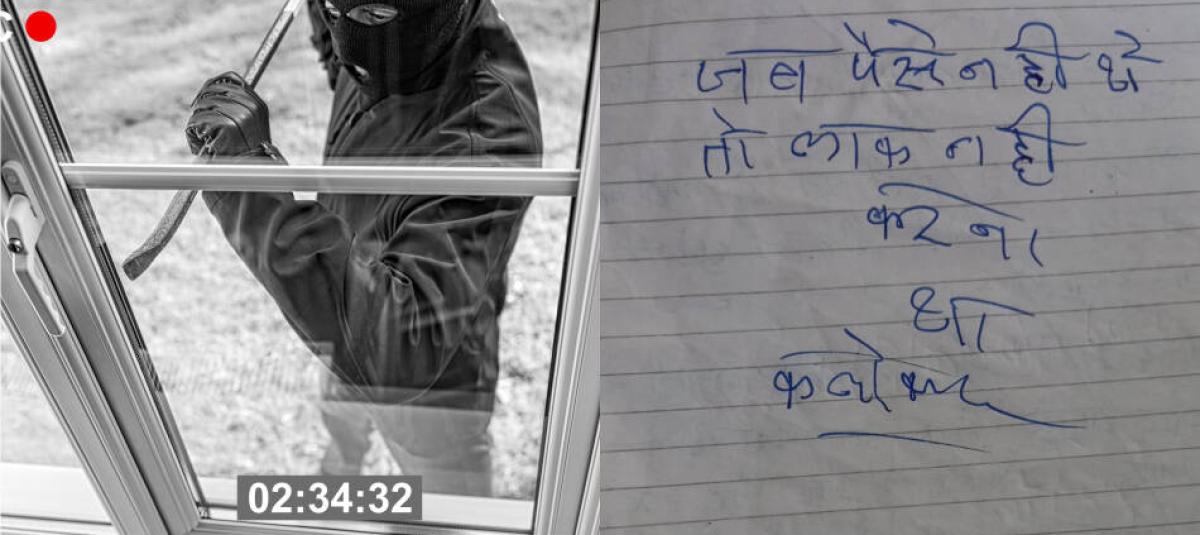 02:34:32
जब पैसे न ही थे
तो लाक न ही
कर ना
था
कलेक्टर